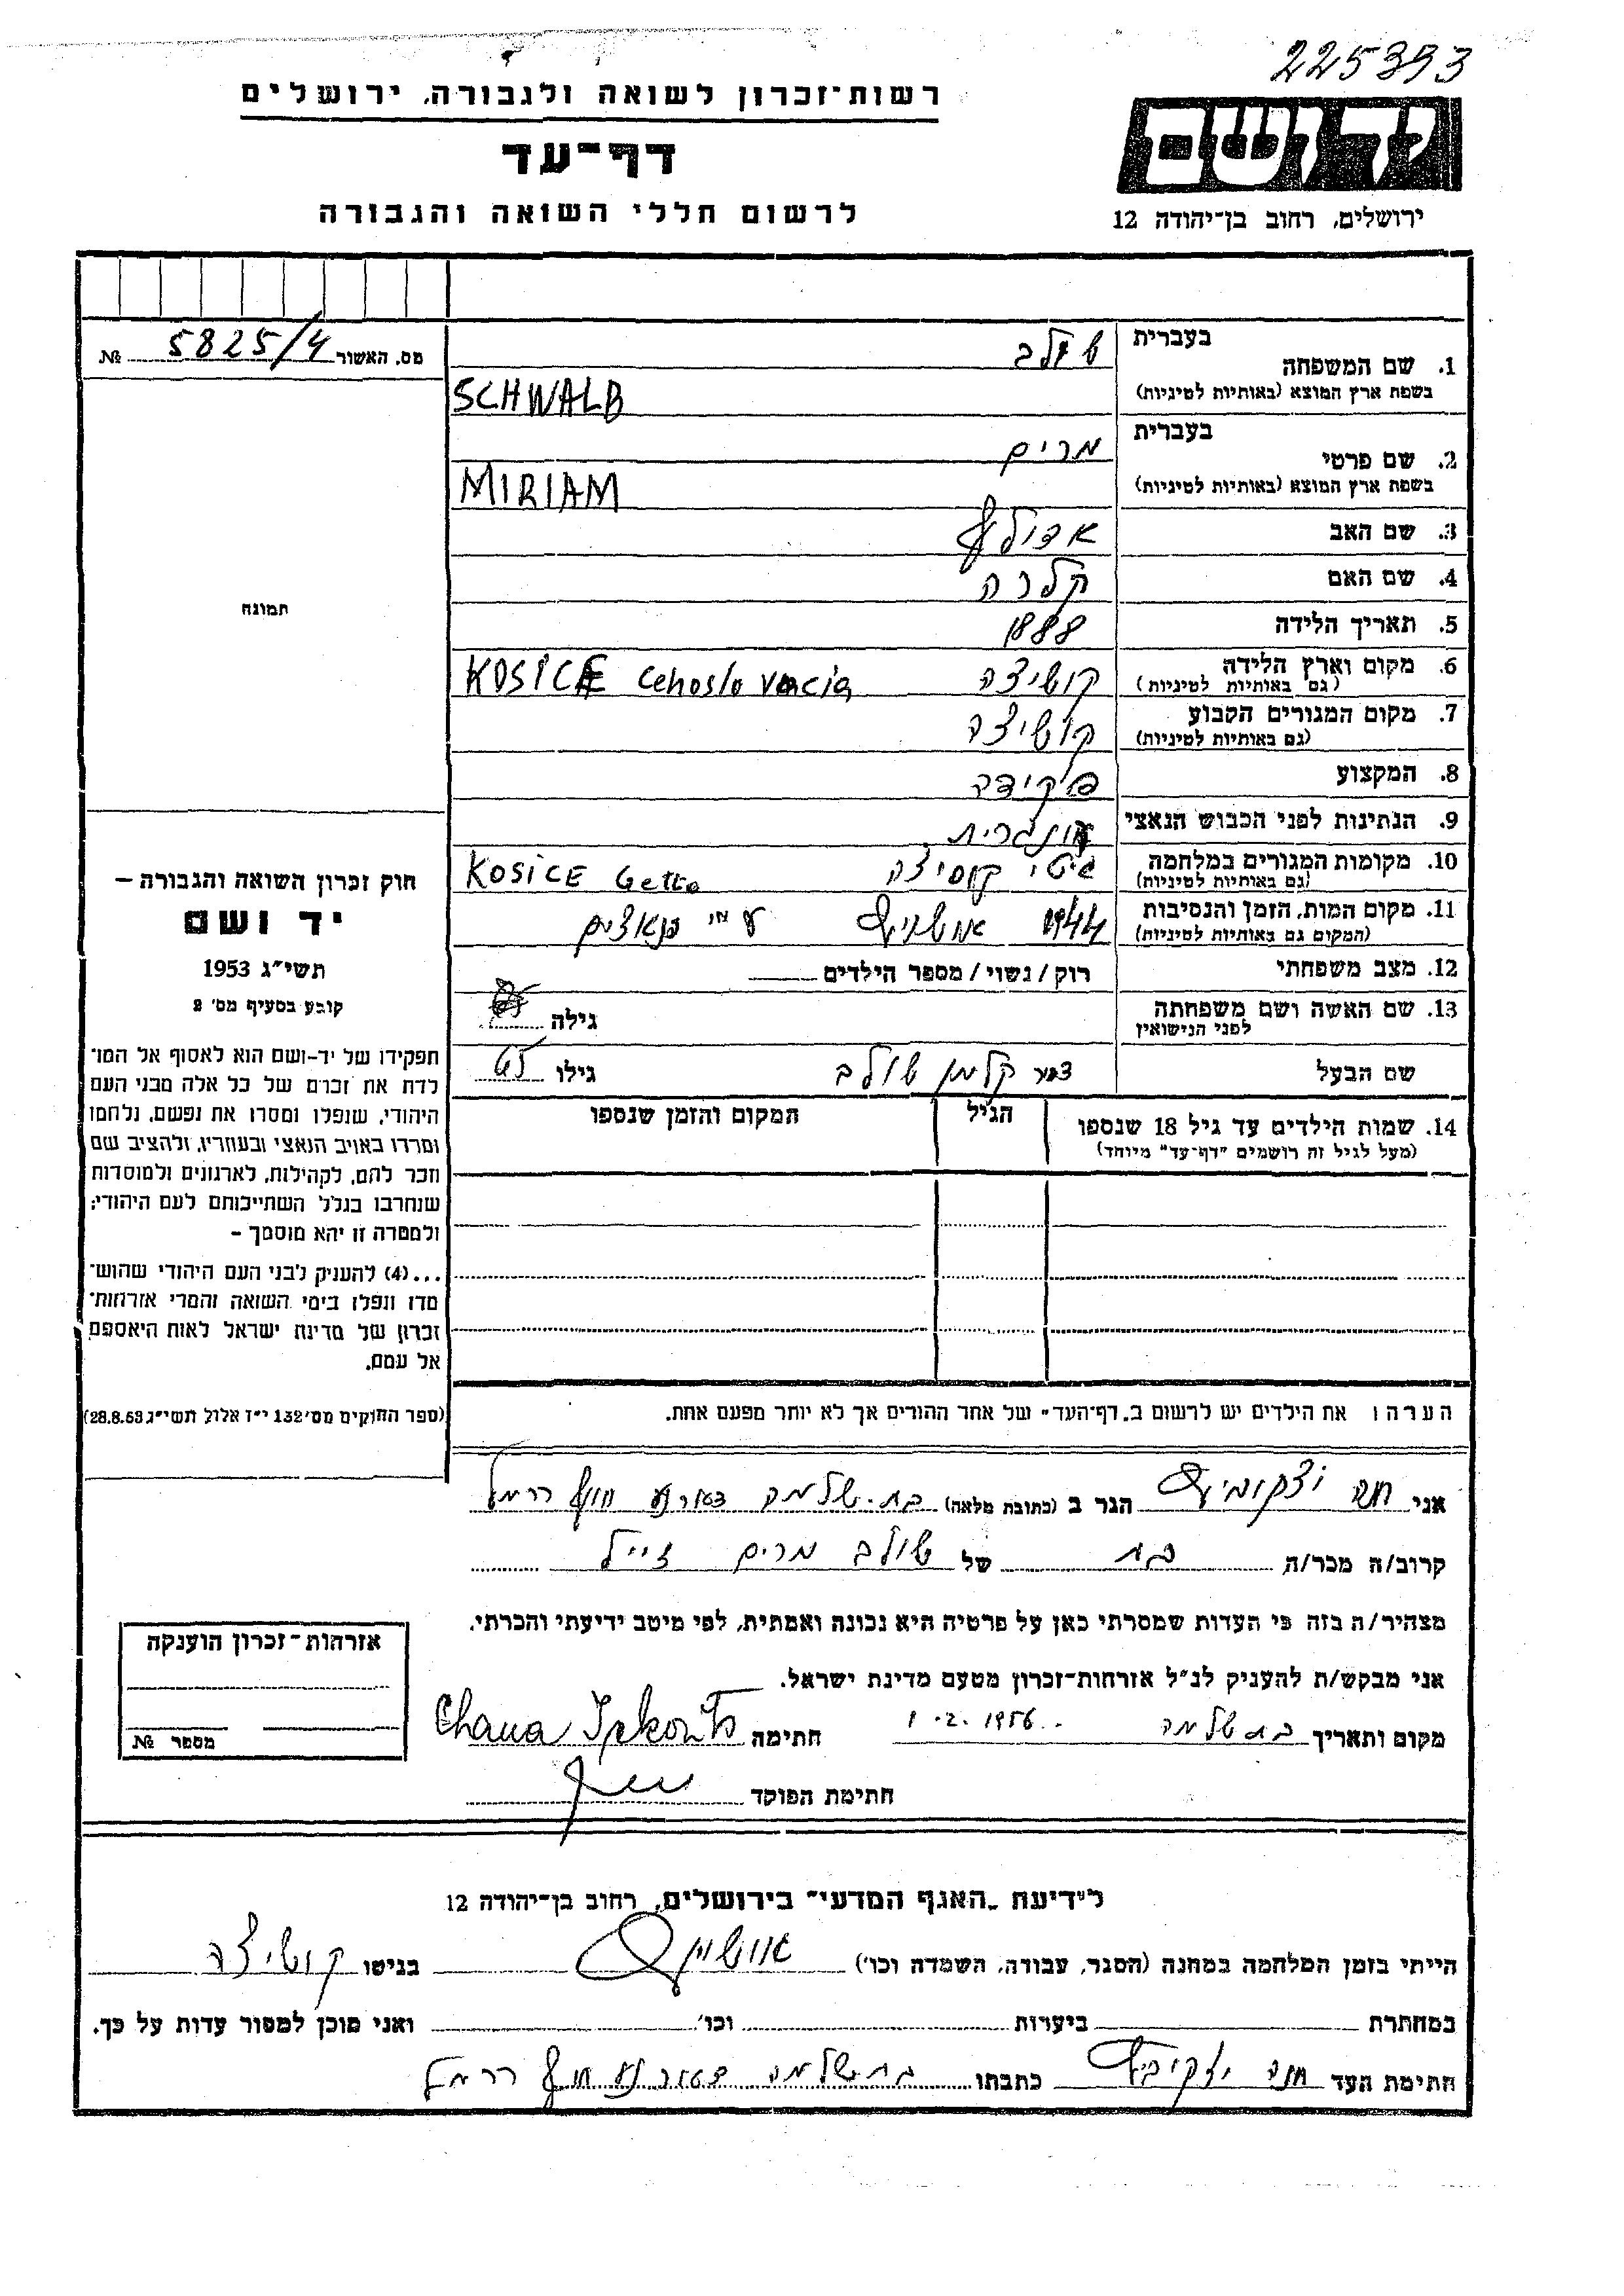 225393
רשות־זכרון לשואה ולגבורה, ירושלים
דף־עד
לרשום חללי השואה והגבורה
יד ושם
ירושלים, רחוב בן־יהודה 12
מס. האשור 5825/4 №
תמונה
חוק זכרון השואה והגבורה –
יד ושם
תשי״ג 1953
קובע בסעיף מס׳ 2
תפקידו של יד-ושם הוא לאסוף אל המו־
לדת את זכרם של כל אלה מבני העם
היהודי, שנפלו ומסרו את נפשם, נלחמו
ומרדו באויב הנאצי ובעוזריו, ולהציב שם
וזכר להם, לקהילות, לארגונים ולמוסדות
שנחרבו בגלל השתייכותם לעם היהודי;
ולמטרה זו יהא מוסמך –
...(4) להעניק לבני העם היהודי שהוש־
מדו ונפלו בימי השואה והמרי אזרחות־
זכרון של מדינת ישראל לאות היאספם
אל עמם.
(ספר החוקים מס׳ 132 י״ז אלול תשי״ג 28.8.53)
בעברית
1. שם המשפחה שולב
בשפת ארץ המוצא (באותיות לטיניות) SCHWALB
בעברית
2. שם פרטי מרים
בשפת ארץ המוצא (באותיות לטיניות) MIRIAM
3. שם האב אדולף
4. שם האם קלרה
5. תאריך הלידה 1888
6. מקום וארץ הלידה קושיצה KOSICE Cehoslovacia
(גם באותיות לטיניות)
7. מקום המגורים הקבוע קושיצה
(גם באותיות לטיניות)
8. המקצוע פקידה
9. הנתינות לפני הכבוש הנאצי אונגרית
10. מקומות המגורים במלחמה גיטו קוסיצה KOSICE Getto
(גם באותיות לטיניות)
11. מקום המות, הזמן והנסיבות 1944 אושויץ ע״י הנאצים
(המקום גם באותיות לטיניות)
12. מצב משפחתי רוק/נשוי/מספר הילדים
13. שם האשה ושם משפחתה גילה
לפני הנישואין
שם הבעל קלמן שולב גילו 65
14. שמות הילדים עד גיל 18 שנספו הגיל המקום והזמן שנספו
(מעל לגיל זה רושמים ״דף־עד״ מיוחד)
הערה: את הילדים יש לרשום ב„דף־העד״ של אחד ההורים אך לא יותר מפעם אחת.
אני חנה יצקוביץ הגר ב (כתובת מלאה) בת-שלמה חוף כרמל
קרוב/ה מכר/ה בת של שולב מרים
מצהיר/ה בזה כי העדות שמסרתי כאן על פרטיה היא נכונה ואמתית, לפי מיטב ידיעתי והכרתי.
אני מבקש/ת להעניק לנ״ל אזרחות־זכרון מטעם מדינת ישראל.
מקום ותאריך בת שלמה 1.2.1956 חתימה Chana
חתימת הפוקד
אזרחות־זכרון הוענקה
מספר №
לידיעת „האגף המדעי״ בירושלים, רחוב בן־יהודה 12
הייתי בזמן המלחמה במחנה (הסגר, עבודה, השמדה וכו׳) אושויץ בגיטו קושיצה
במחתרת ביערות וכו׳ ואני מוכן למסור עדות על כך.
חתימת העד חנה יצקוביץ כתבתו בת שלמה חוף כרמל